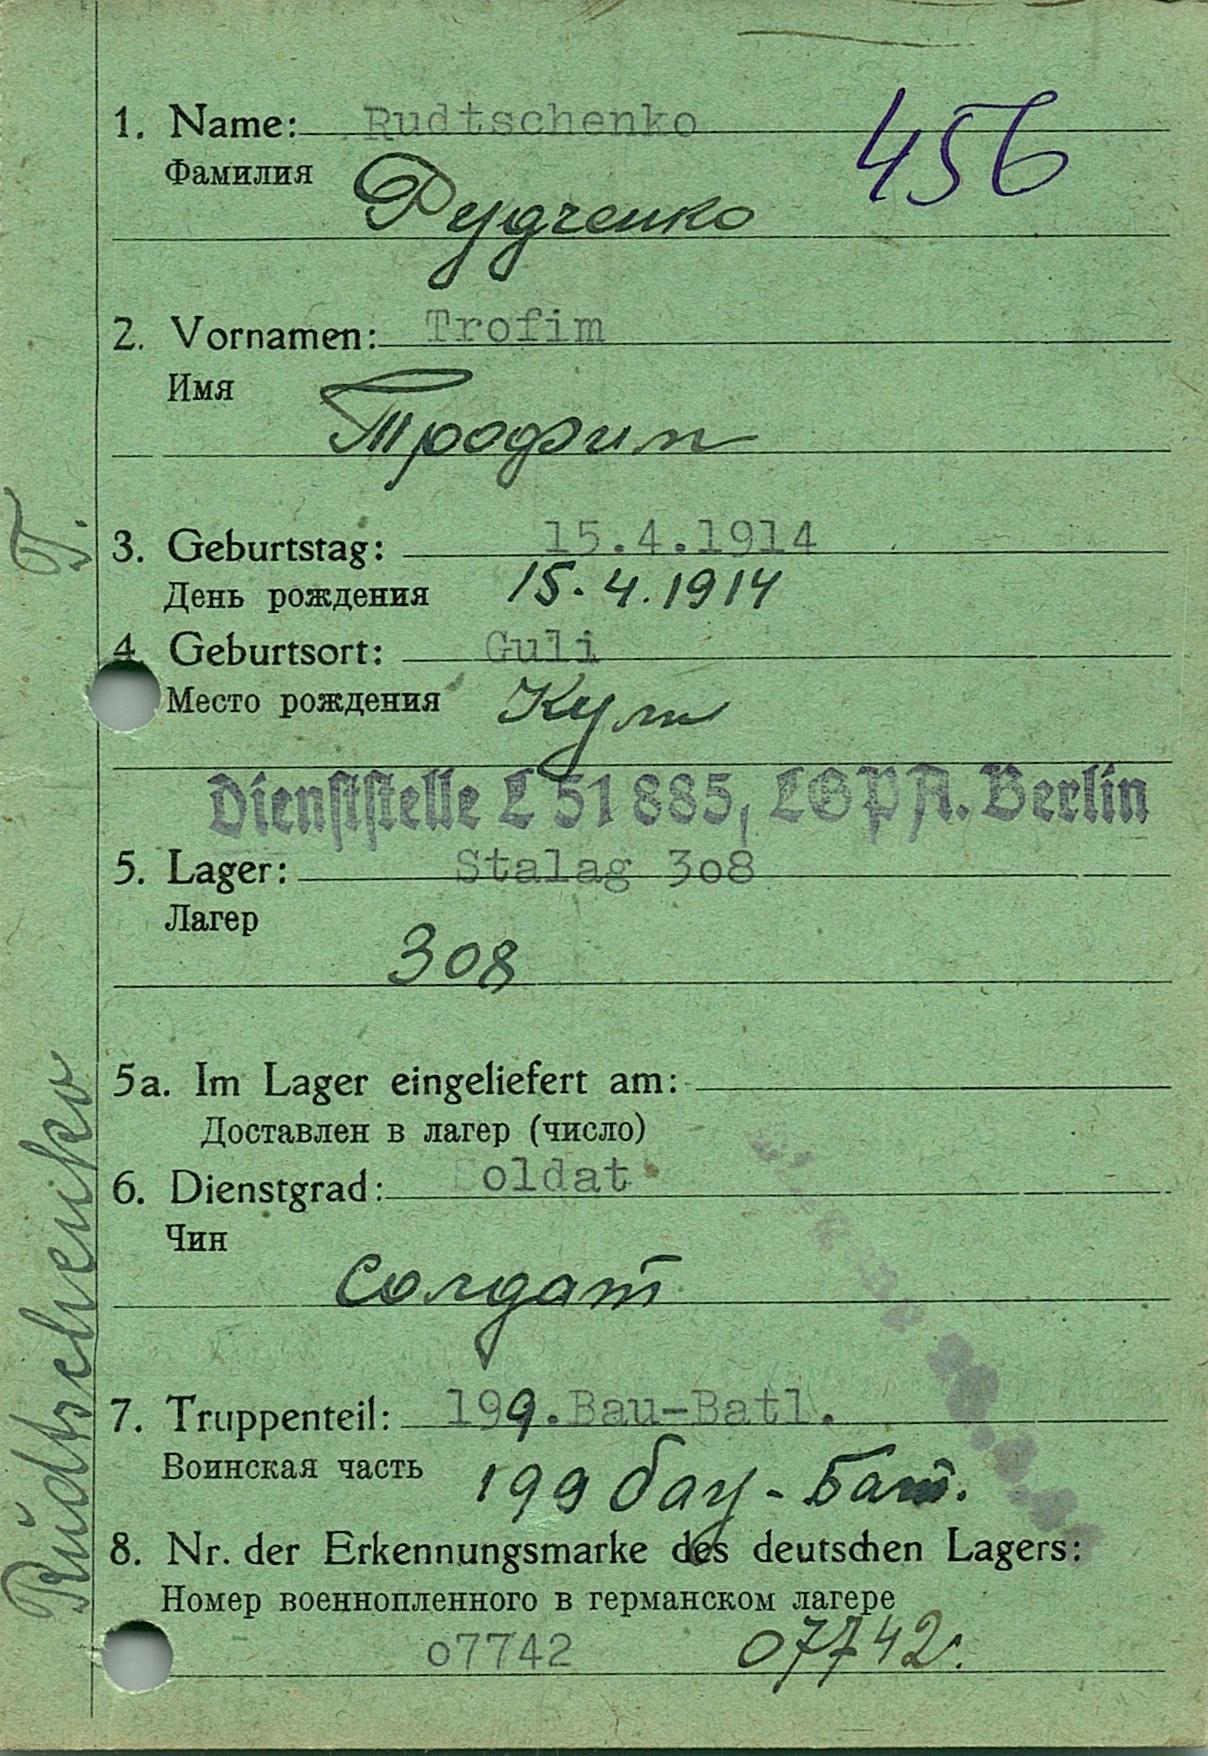 456
1. Name: Rudtschenko
Фамилия
Рудченко
2. Vornamen: Trofim
Имя
Трофим
3. Geburtstag: 15.4.1914
День рождения 15.4.1914
4. Geburtsort: Guli
Место рождения
Dienststelle L 51 885, LGPA. Berlin
5. Lager: Stalag 308
Лагер
308
5a. Im Lager eingeliefert am:
Доставлен в лагер (число)
6. Dienstgrad: Soldat
Чин
солдат
7. Truppenteil: 199. Bau-Batl.
Воинская часть 199 бау-Бат.
8. Nr. der Erkennungsmarke des deutschen Lagers:
Номер военнопленного в германском лагере
07742 07742.
Rudtschenko T.